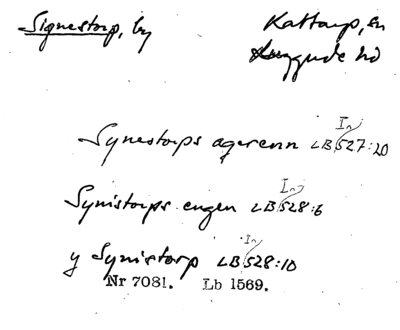 Signestorp, by
Kattarp, sn
Luggude hd
Synestorps agerenn LB 527:20
In
Synistorps engen LB 528:6
In
y Synistorp LB 528:10
In
Nr 7081. Lb 1569.